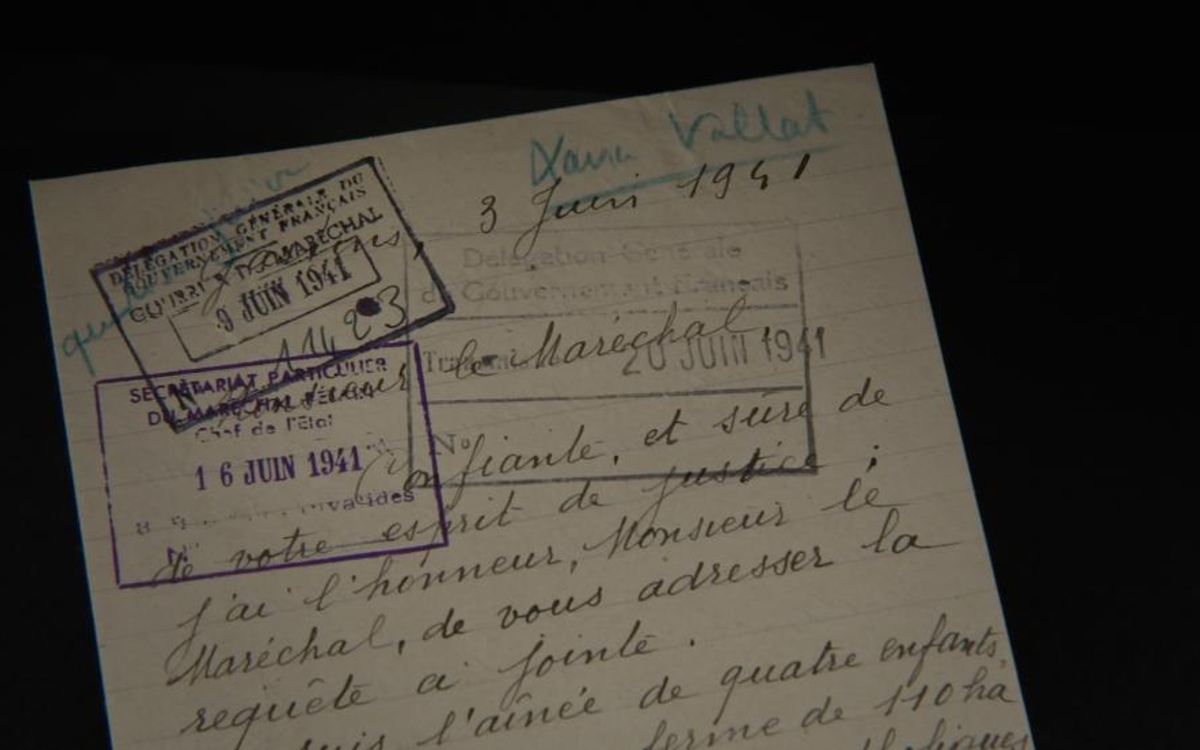 Xavier Vallat
3 Juin 1941
DÉLÉGATION GÉNÉRALE DU
GOUVERNEMENT FRANÇAIS
MARÉCHAL
9 JUIN 1941
Délégation Générale
du Gouvernement Français
20 JUIN 1941
No
SECRÉTARIAT PARTICULIER
DU MARÉCHAL PÉTAIN
Chef de l'État
16 JUIN 1941
Invalides
Monsieur le Maréchal
Confiante, et sûre de
de votre esprit de justice ;
j'ai l'honneur, Monsieur le
Maréchal, de vous adresser la
requête ci jointe.
suis l'aînée de quatre enfants,
ferme de 110 ha